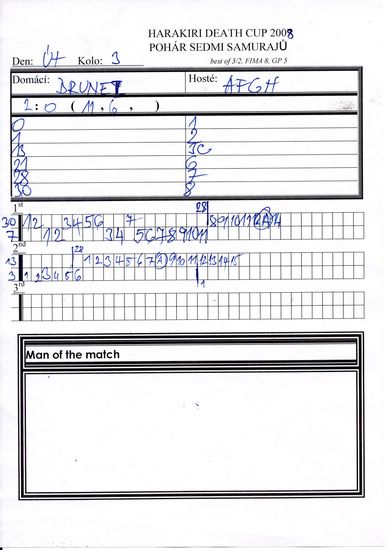 HARAKIRI DEATH CUP 2008
POHÁR SEDMI SAMURAJŮ
Den: ÚT Kolo: 3 best of 3/2, FIMA 8, GP 5
Domácí: Hosté: AFGH
2:0 (11, 6, )
0 1
1 2
13 3C
21 6
28 7
30 8
1st 28
30 1 2 3 4 5 6 7 8 9 10 11 12 13 14
7 1 2 3 4 5 6 7 8 9 10 11
2nd 28
13 1 2 3 4 5 6 7 9 10 11 12 13 14 15
3 1 2 3 4 5 6 1
3rd
Man of the match